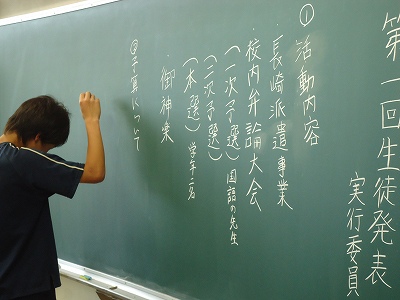 第一回生徒発表
実行委員
①活動内容
・長崎派遣事業
・校内弁論大会
(一次予選)国語の先生
(二次予選)
(本選)学年二名
・御神楽
②予算について